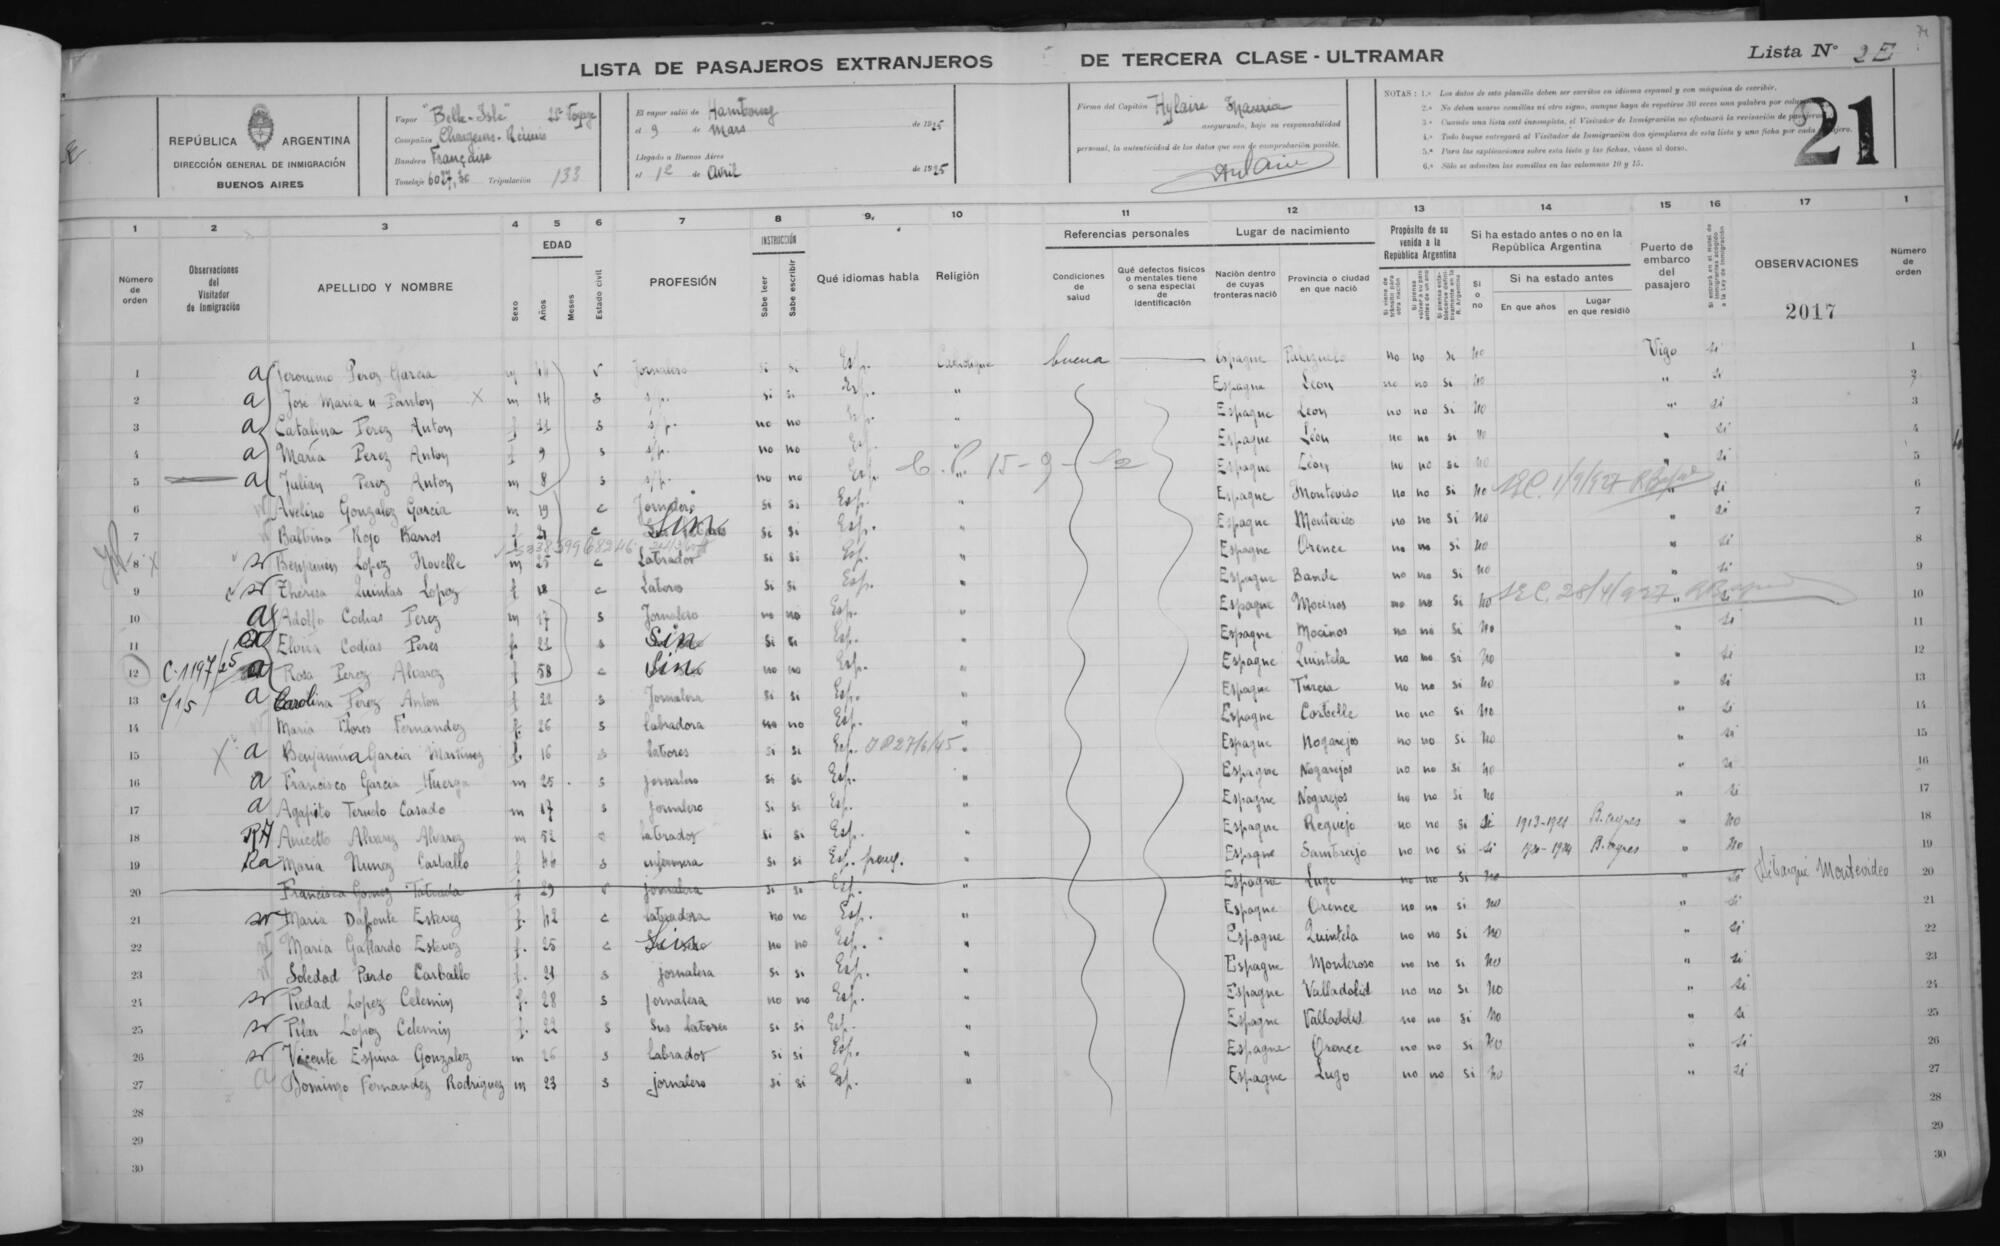 LISTA DE PASAJEROS EXTRANJEROS DE TERCERA CLASE - ULTRAMAR
Lista N° 2E
REPÚBLICA ARGENTINA
DIRECCIÓN GENERAL DE INMIGRACIÓN
BUENOS AIRES
Vapor "Belle-Isle" 21e Voyage
Compañia Chargeurs-Réunis
Bandera Française
Tonelaje 6027,30 Tripulación 133
El vapor salió de Hambourg
el 9 de Mars de 1925
Llegado a Buenos Aires
el 12 de Avril de 1925
Firma del Capitán Hylaire Mauria
asegurando, bajo su responsabilidad
personal, la autenticidad de los datos que son de comprobación posible.
NOTAS: 1.ª Los datos de esta planilla deben ser escritos en idioma español y con máquina de escribir.
2.ª No deben usarse comillas ni otro signo, aunque haya de repetirse 30 veces una palabra por columna
3.ª Cuando una lista esté incompleta, el Visitador de Inmigración no efectuará la revisación de pasajeros
4.ª Todo buque entregará al Visitador de Inmigración dos ejemplares de esta lista y una ficha por cada pasajero.
5.ª Para las explicaciones sobre esta lista y las fichas, véase al dorso.
6.ª Sólo se admiten las comillas en las columnas 10 y 15.
21
1 2 3 4 5 6 7 8 9 10 11 12 13 14 15 16 17 1
Número de orden
Observaciones del Visitador de Inmigración
APELLIDO Y NOMBRE
Sexo
EDAD
Años
Meses
Estado civil
PROFESIÓN
INSTRUCCIÓN
Sabe leer
Sabe escribir
Qué idiomas habla
Religión
Referencias personales
Condiciones de salud
Qué defectos físicos o mentales tiene o sena especial de identificación
Lugar de nacimiento
Nación dentro de cuyas fronteras nació
Provincia o ciudad en que nació
Propósito de su venida a la República Argentina
Si ha estado antes o no en la República Argentina
Si o no
Si ha estado antes
En que años
Lugar en que residió
Puerto de embarco del pasajero
OBSERVACIONES
2017
Número de orden
1 a Jeronimo Perez Garcia m v Jornalero si si Esp. Catholique buena Espagne no no si no Vigo si 1
2 a Jose Maria m 14 s s/p. si si Esp. " Espagne Leon no no si no " si 2
3 a Catalina Perez Anton f 11 s s/p. no no Esp. " Espagne Leon no no si no " si 3
4 a Maria Perez Anton f 9 s s/p. no no Esp. " Espagne Léon no no si no " si 4
5 a Julian Perez Anton m 8 s s/p. no no Esp. " Espagne Léon no no si no " si 5
6 Avelino Gonzalez Garcia m 19 c Jornalero si si Esp. " Espagne no no si no " si 6
7 Balbina Rojo Barros f c Sin si si Esp. " Espagne no no si no " si 7
8 Benjamin Lopez Novelle m 25 c Labrador si si Esp. " Espagne Orence no no si no " si 8
9 Theresa Quintas Lopez f 18 c Labores si si Esp. " Espagne Bande no no si no " si 9
10 a Adolfo Codias Perez m 17 s Jornalero no no Esp. " Espagne Mocinos no no si no " si 10
11 a Elvira Codias Peres f 21 s Sin si si Esp. " Espagne Mocinos no no si no " si 11
12 C.1197/25 a Rosa Perez Alvarez f 58 c Sin no no Esp. " Espagne Quintela no no si no " si 12
13 a Carolina Perez Anton f 22 s Jornalera si si Esp. " Espagne Turcia no no si no " si 13
14 Maria Flores Fernandez f. 26 s labradora no no Esp. " Espagne Corbelle no no si no " si 14
15 a Benjamina Garcia Martinez f. 16 s labores si si Esp. " Espagne Nogarejos no no si no " si 15
16 a Francisco Garcia Huerga m 25 s jornalero si si Esp. " Espagne Nogarejos no no si no " si 16
17 a Agapito Teruelo Casado m 17 s jornalero si si Esp. " Espagne Nogarejos no no si no " si 17
18 RA Anicetto Alvarez Alvarez m 52 c labrador si si Esp. " Espagne Requejo no no si si 1913-1921 B. ayres " no 18
19 Ra Maria Nunez Carballo f 46 s enfermera si si Esp. franç. " Espagne no no si si B. ayres " no 19
20 Francisca Gomez Taboada f 29 v jornalera si si Esp. " Espagne Lugo no no si no " si Débarqué Montevideo 20
21 Maria Dafonte Estevez f. 42 c labradora no no Esp. " Espagne Orence no no si no " si 21
22 Maria Gallardo Estevez f. 25 c Sin no no Esp. " Espagne Quintela no no si no " si 22
23 Soledad Pardo Carballo f. 21 s jornalera si si Esp. " Espagne Monteroso no no si no " si 23
24 Piedad Lopez Celemin f. 28 s jornalera no no Esp. " Espagne Valladolid no no si no " si 24
25 Pilar Lopez Celemin f. 22 s Sus labores si si Esp. " Espagne Valladolid no no si no " si 25
26 Vicente Espina Gonzalez m 26 s labrador si si Esp. " Espagne Orence no no si no " si 26
27 Domingo Fernandez Rodriguez m 23 s jornalero si si Esp. " Espagne Lugo no no si no " si 27
28 28
29 29
30 30